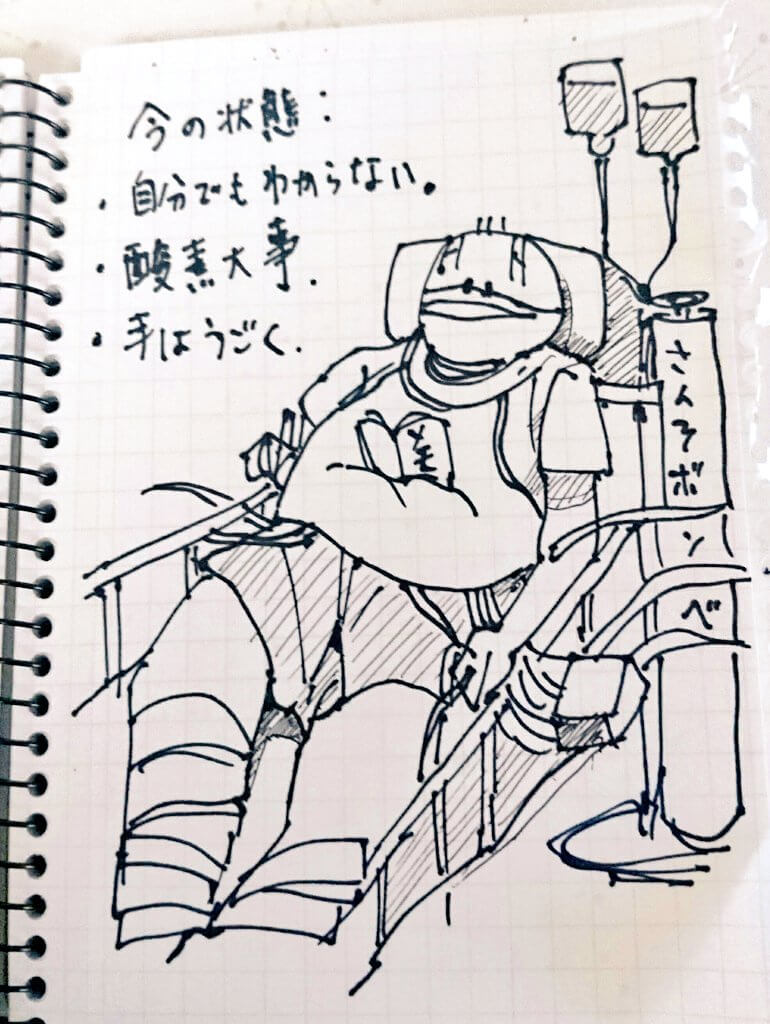 今の状態：
・自分でもわからない。
・酸素大事．
・手はうごく．
さんそボンベ